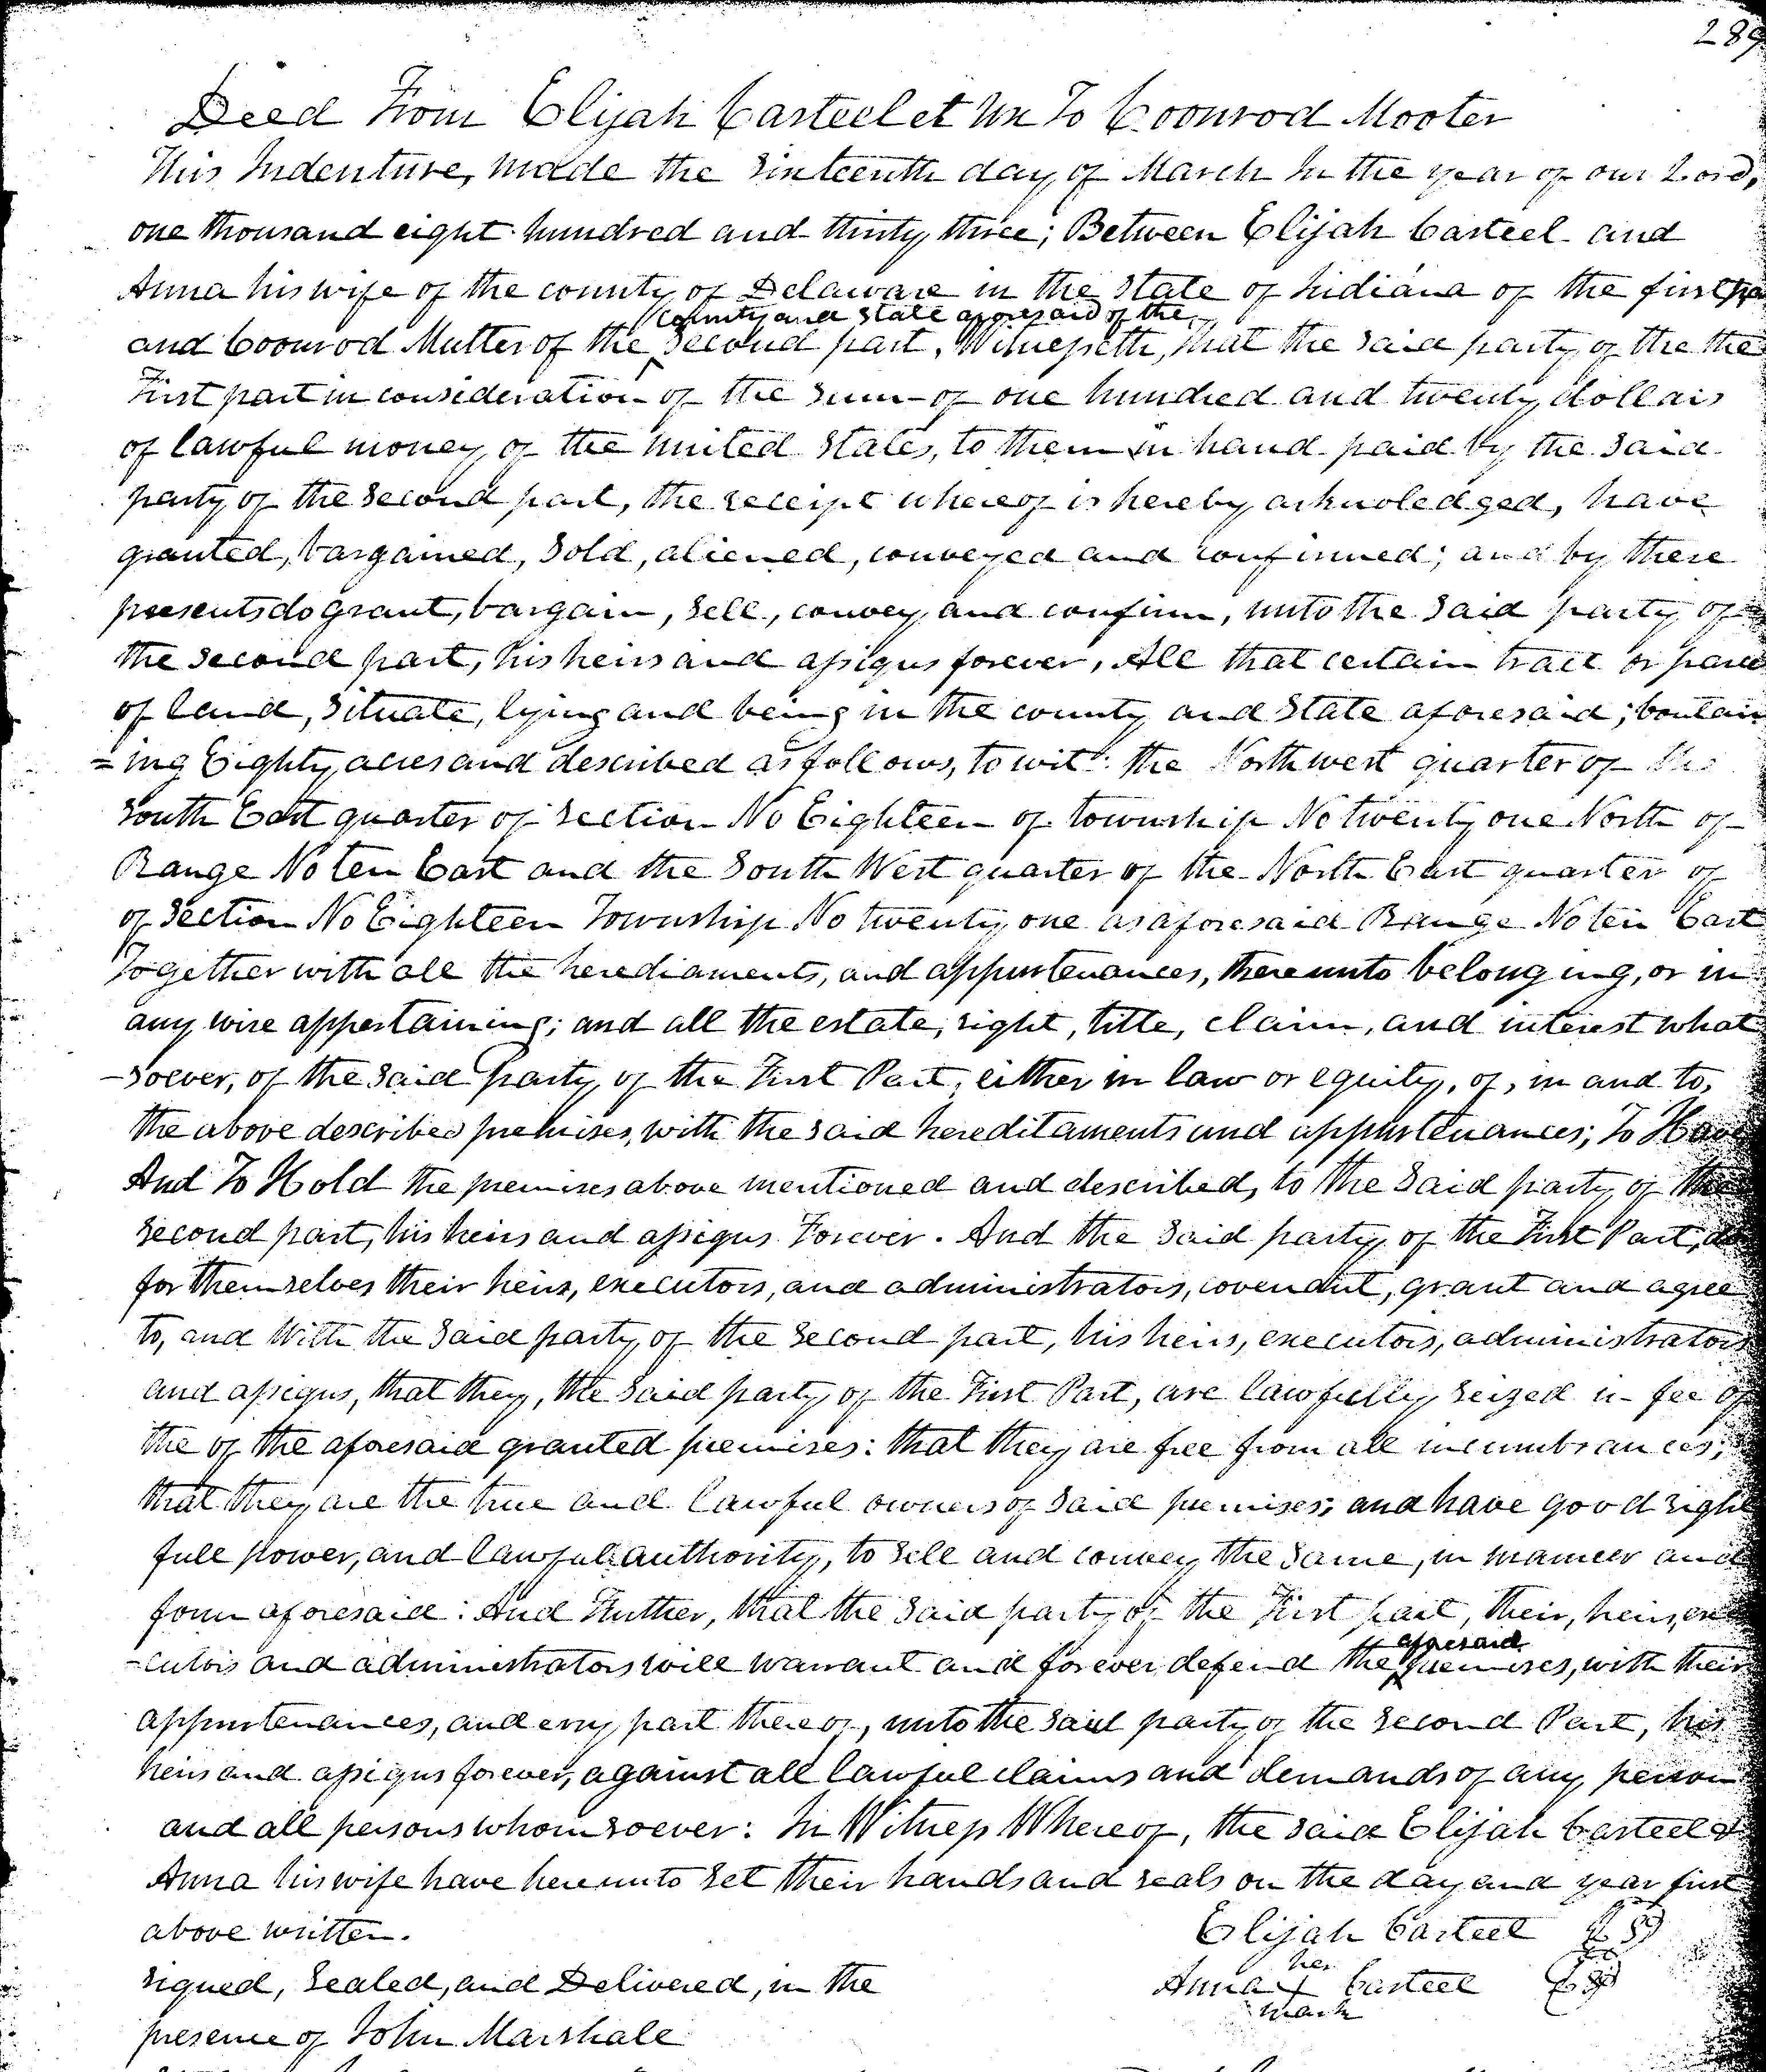 289
Deed From Elijah Casteel et Ux To Coonrod Mooter
This Indenture, made the Sixteenth day of March In the year of our Lord,
one thousand eight hundred and thirty three; Between Elijah Casteel and
Anna his wife of the county of Delaware in the State of Indiana of the first pa
county and State aforesaid of the
and Coonrod Mutter of the second part, Witnesseth, that the said party of the the
First part in consideration of the sum of one hundred and twenty dollars
of lawful money of the united States, to them in hand paid by the said
party of the second part, the receipt whereof is hereby acknoledged, have
granted, bargained, Sold, aliened, conveyed and confirmed; and by these
presents do grant, bargain, sell, convey and confirm, unto the said party of
the second part, his heirs and assigns forever, All that certain tract or parcel
of land, situate, lying and being in the county and State aforesaid; contain
=ing Eighty acres and described as follows, to wit: the North west quarter of the
South East quarter of section No Eighteen of township No twenty one North of
Range No ten East and the South West quarter of the North East quarter of
of Section No Eighteen Township No twenty one as aforesaid Range No ten East
Together with all the herediaments, and appurtenances, thereunto belonging, or in
any wise appertaining; and all the estate, right, title, claim, and interest what
-soever, of the said Party of the First Part, either in law or equity, of, in and to,
the above described premises, with the said hereditaments and appurtenances; To Have
And To Hold the premises above mentioned and described, to the said party of the
second part, his heirs and assigns Forever. And the said party of the First Part, do
for themselves their heirs, executors, and administrators, covenant, grant and agree
to, and With the said party of the second part, his heirs, executors, administrators
and assigns, that they, the said party of the First Part, are lawfully seized in fee of
the of the aforesaid granted premises: that they are free from all incumbrances;
that they are the true and lawful owners of said premises; and have good right
full power, and lawful authority, to sell and convey the same, in manner and
form aforesaid: And Further, that the said party of the First part, their, heirs, exe
-cutors and administrators will warrant and forever defend the premises, with their
aforesaid
appurtenances, and evry part thereof, unto the said party of the second Part, his
heirs and assigns forever, against all lawful claims and demands of any person
and all persons whomsoever: In Witness Whereof, the said Elijah Casteel &
Anna his wife have hereunto set their hands and seals on the day and year first
above written.
Elijah Casteel LS
Signed, Sealed, and Delivered, in the
her
Anna X Casteel LS
mark
presence of John Marshall